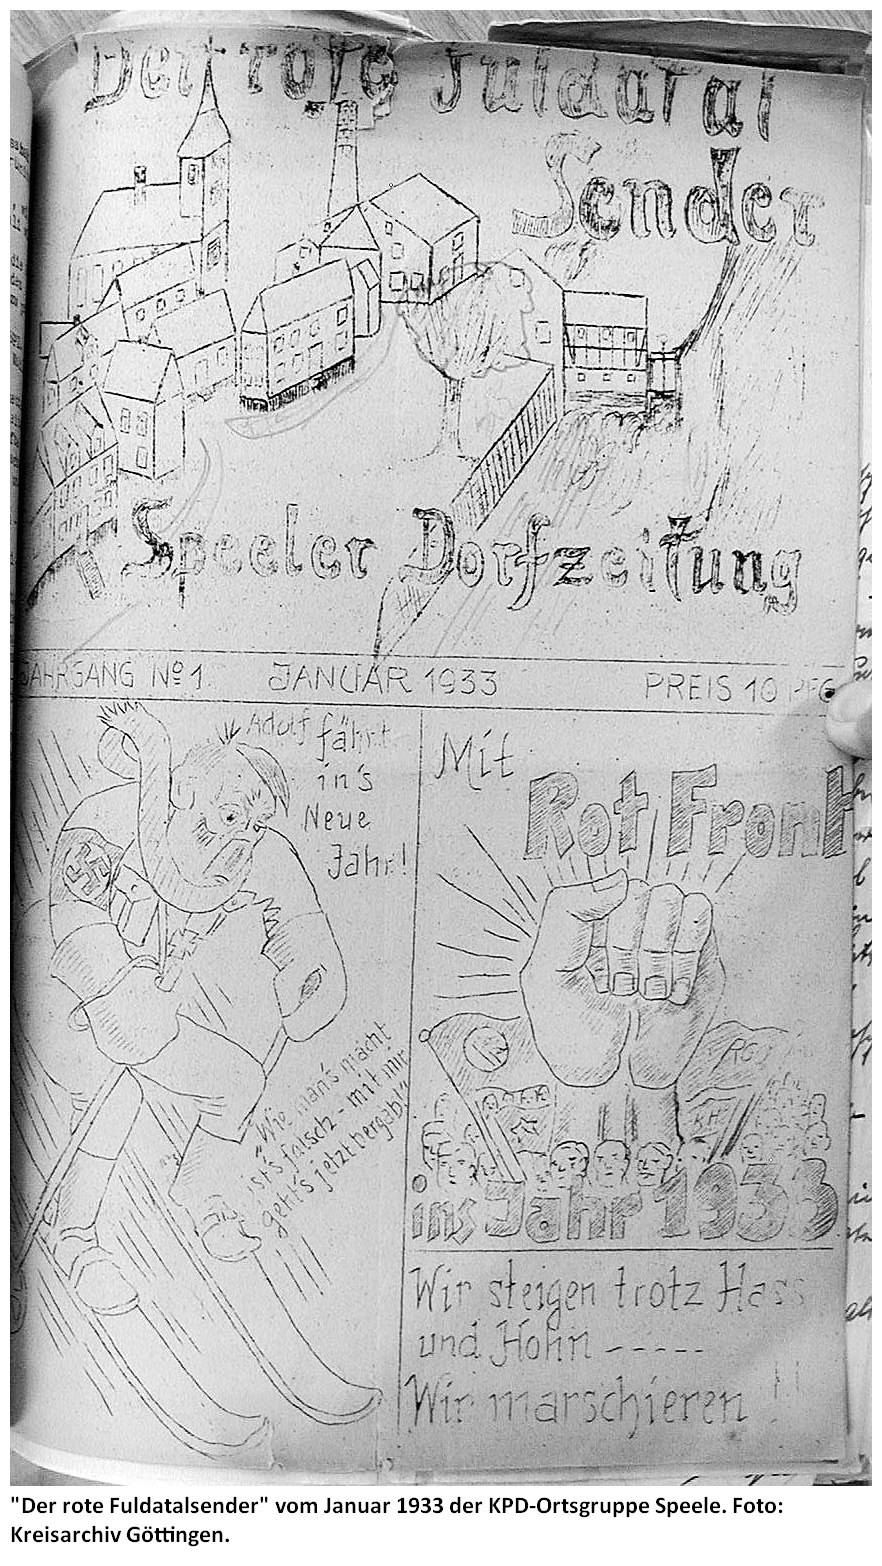 Der rote Fuldatal
Sender
Speeler Dorfzeitung
JAHRGANG Nº 1. JANUAR 1933 PREIS 10 PFG
Adolf fährt
in's
Neue
Jahr!
"Wie man's macht
ist's falsch - mit mir
geht's jetzt bergab!"
Mit
Rot Front
RGO
KH
ins Jahr 1933
Wir steigen trotz Hass
und Hohn -----
Wir marschieren !!
"Der rote Fuldatalsender" vom Januar 1933 der KPD-Ortsgruppe Speele. Foto:
Kreisarchiv Göttingen.